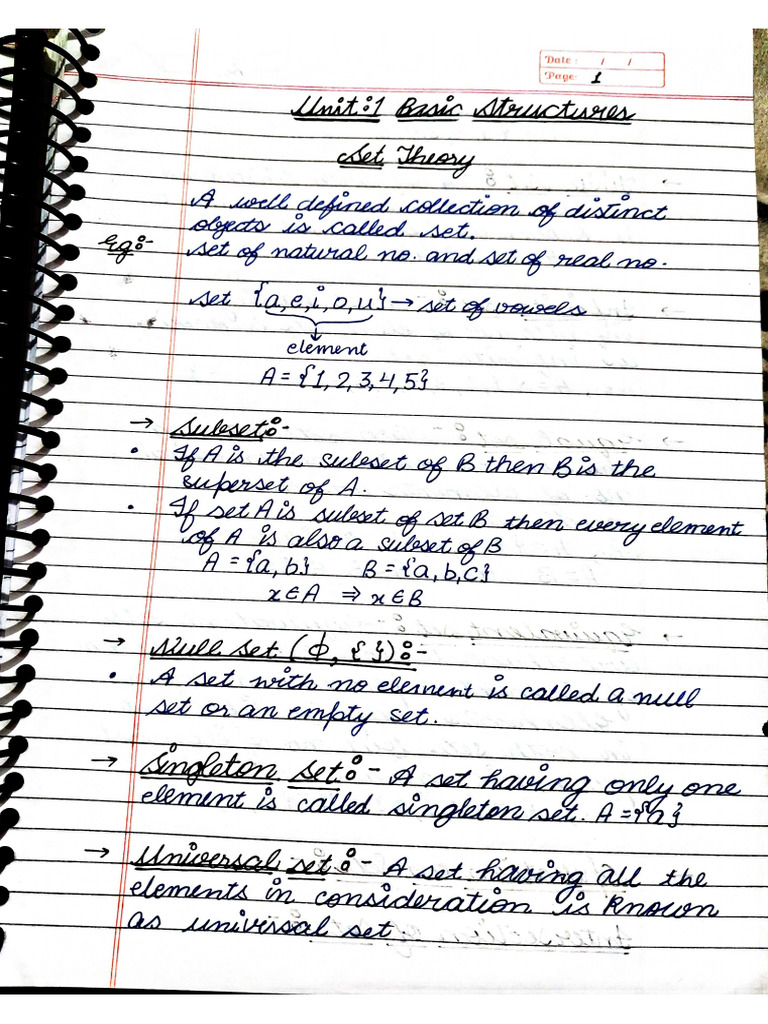 Date : / /
Page: 1
Unit:1 Basic Structures
Set Theory
A well defined collection of distinct
objects is called set.
Eg:- set of natural no. and set of real no.
set {a,e,i,o,u} → set of vowels
↓
element
A = {1,2,3,4,5}
→ Subset:-
• If A is the subset of B then B is the
superset of A.
• If set A is subset of set B then every element
of A is also a subset of B
A = {a,b} B = {a,b,c}
x∈A ⇒ x∈B
→ Null set (ϕ, { }):-
• A set with no element is called a null
set or an empty set.
→ Singleton set:- A set having only one
element is called singleton set. A = {a}
→ Universal set:- A set having all the
elements in consideration is known
as universal set.